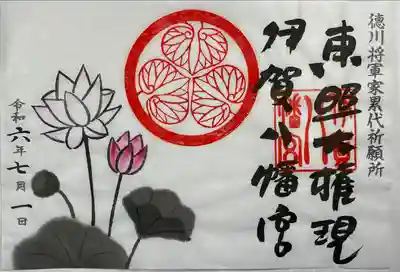 徳川将軍家累代祈願所
東照大権現
伊賀八幡宮
令和六年七月一日